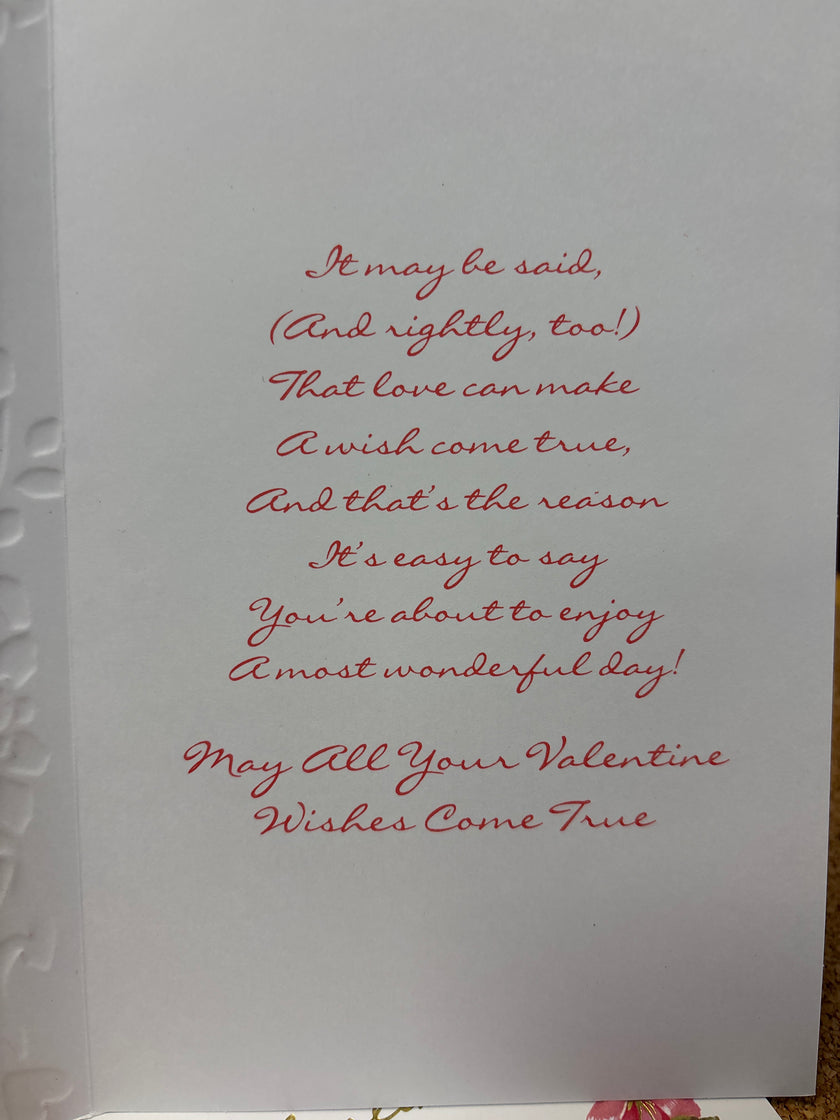 It may be said,
(And rightly, too!)
That love can make
A wish come true,
And that's the reason
It's easy to say
You're about to enjoy
A most wonderful day!
May All Your Valentine
Wishes Come True